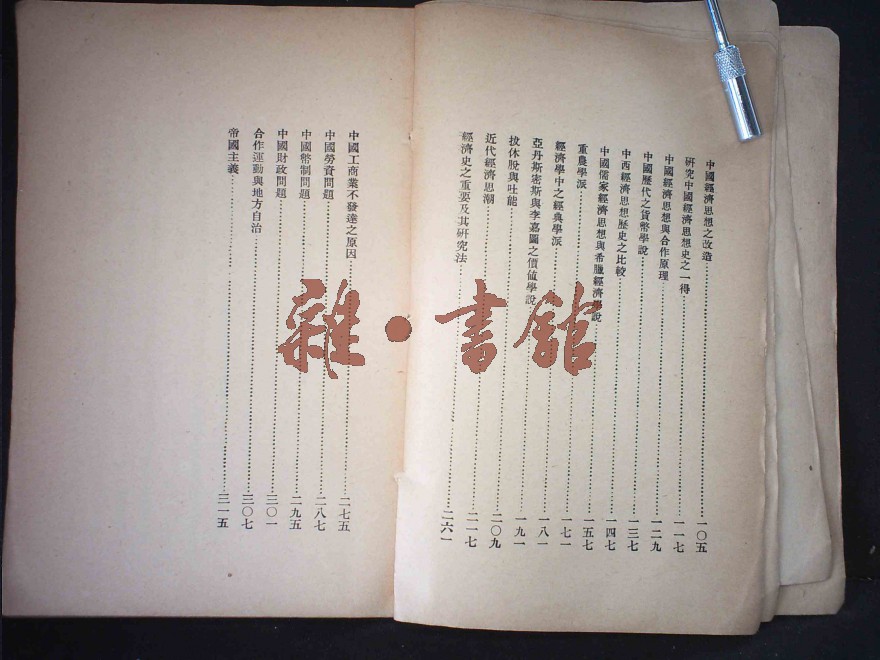 中國經濟思想之改造……一〇五
研究中國經濟思想史之一得……一一七
中國經濟思想與合作原理……一二九
中國歷代之貨幣學說……一三七
中西經濟思想歷史之比較……一四七
中國儒家經濟思想與希臘經濟學說……一五七
重農學派……一七一
經濟學中之經典學派……一八一
亞丹斯密斯與李嘉圖之價值學說……一九一
拔休脫與吐能……二〇九
近代經濟思潮……二一七
經濟史之重要及其研究法……二六一
中國工商業不發達之原因……二七五
中國勞資問題……二八七
中國幣制問題……二九五
中國財政問題……三〇一
合作運動與地方自治……三〇七
帝國主義……三一五
雜·書館